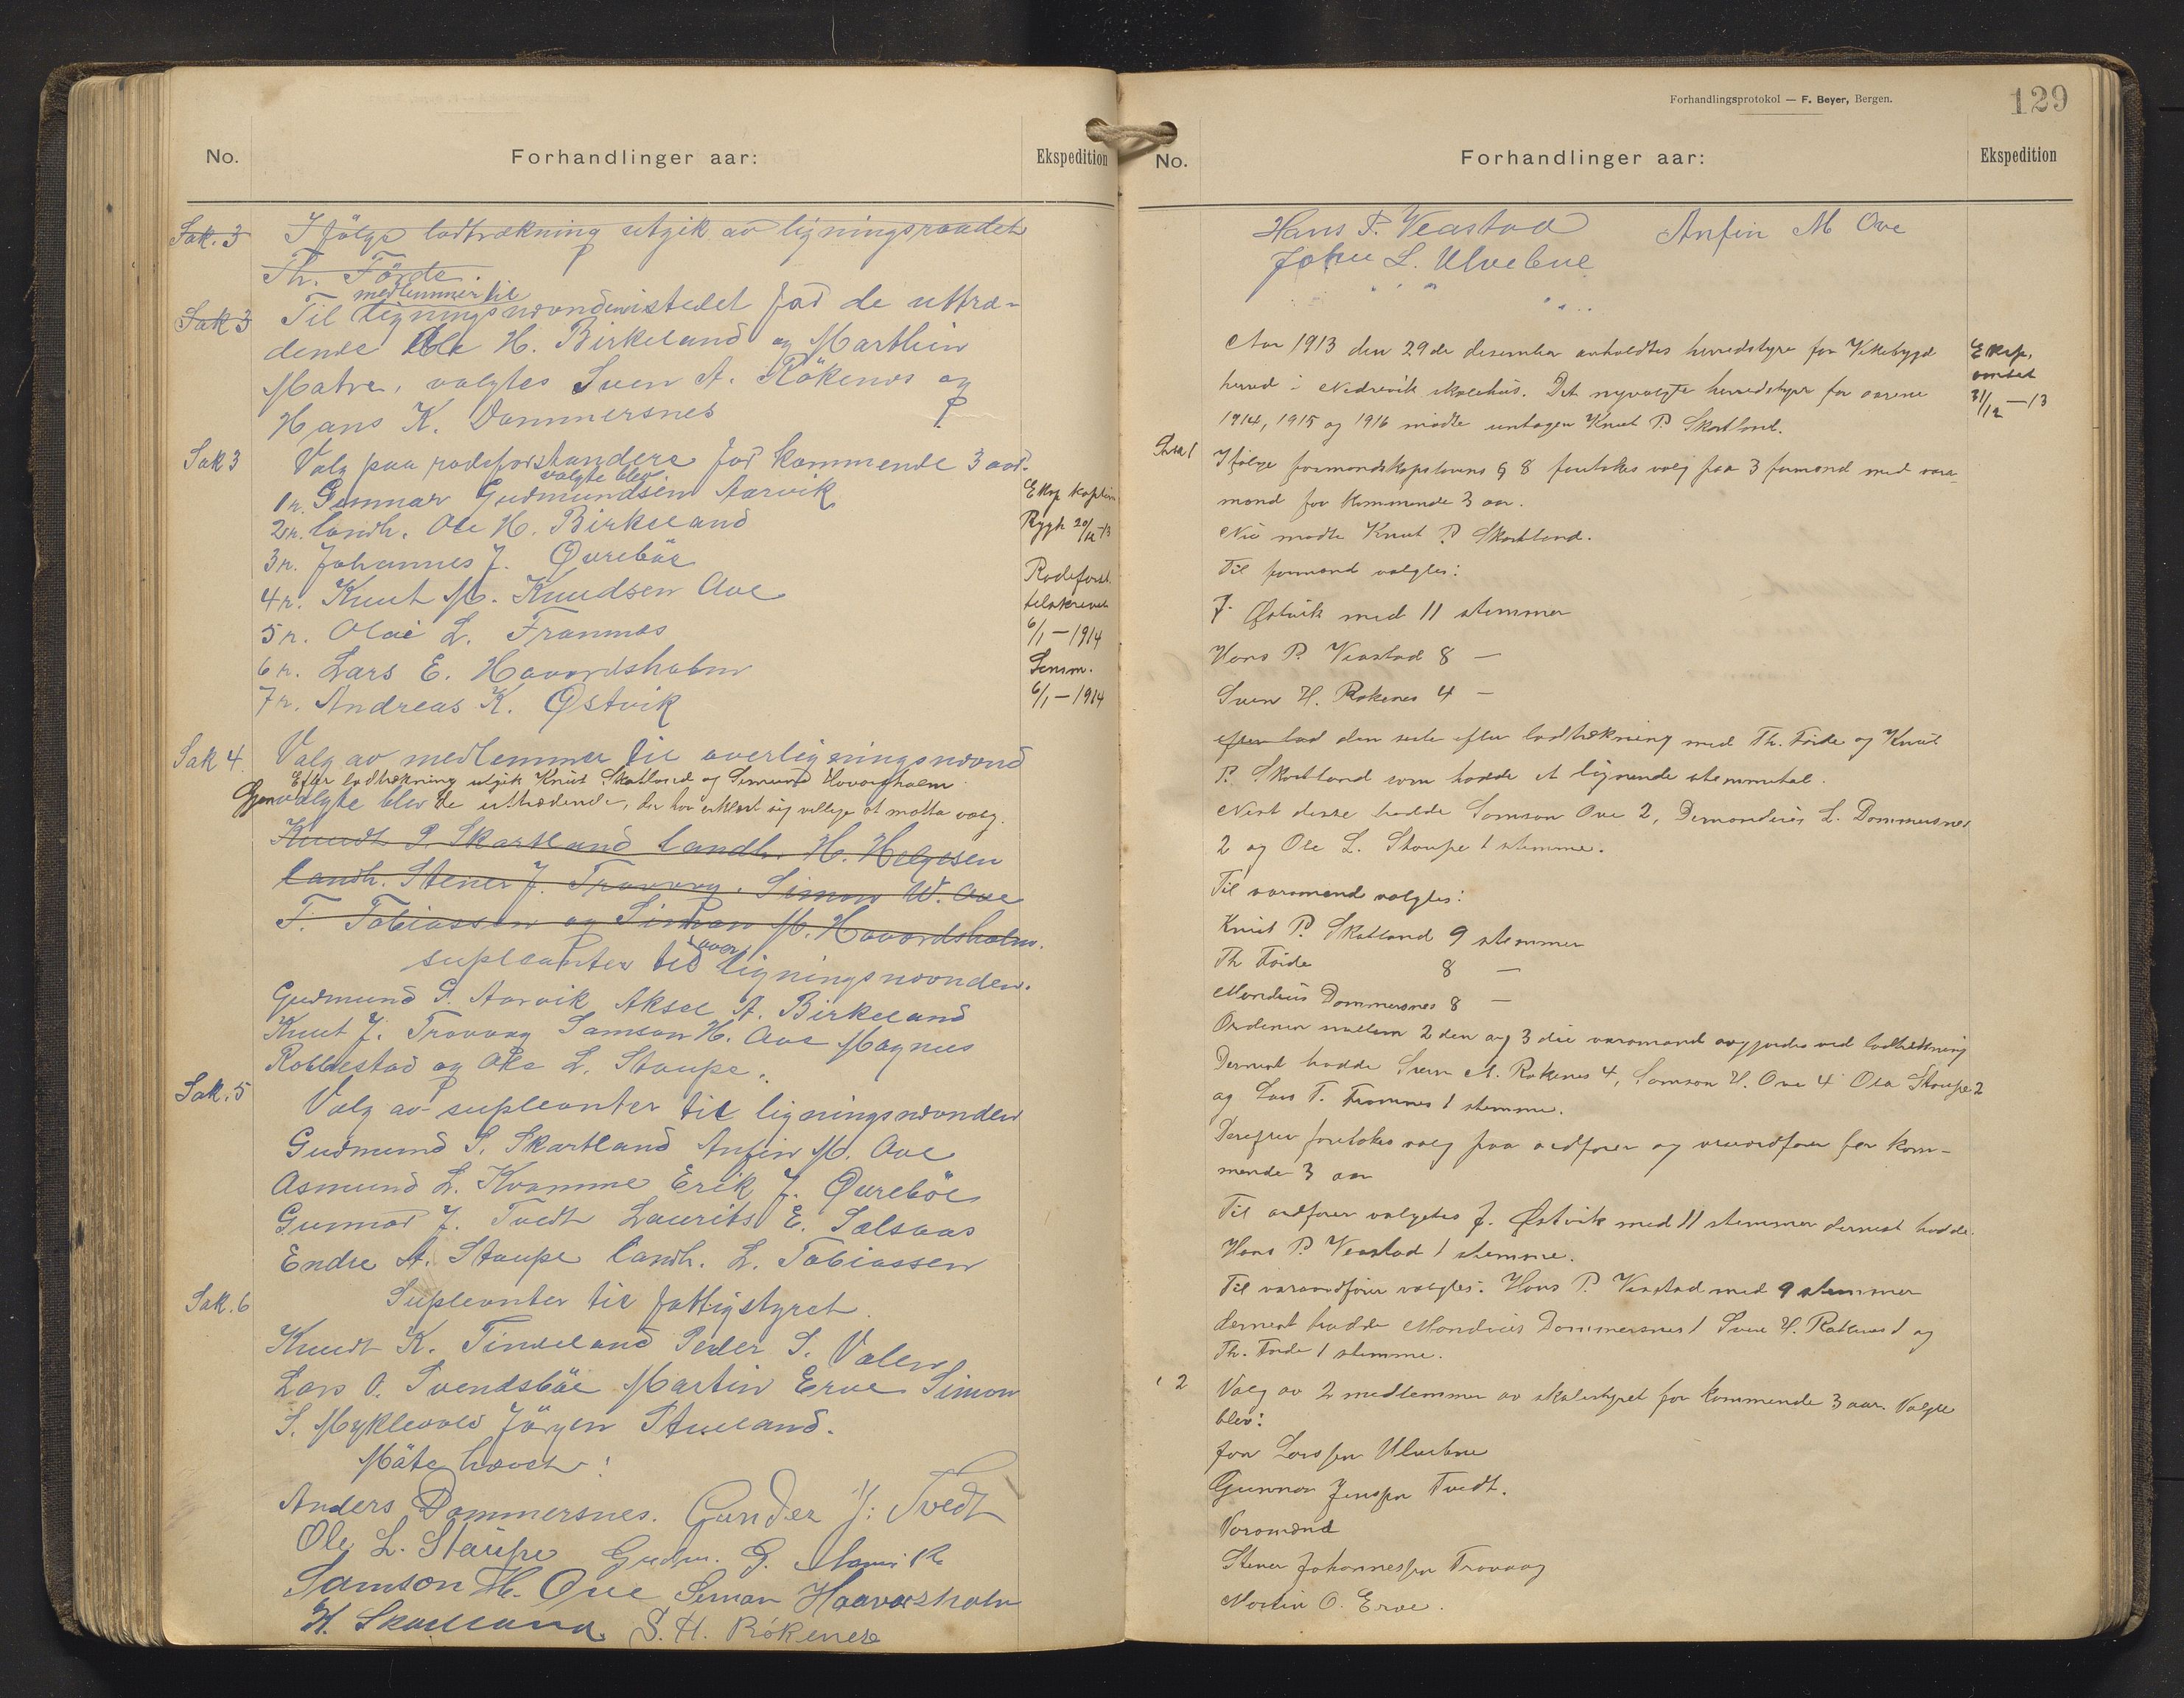 No.
Forhandlinger aar:
Ekspedition
Sak. 3 Ifölge lodtrækning utgik av ligningsraadet
Th. Förde.
medlemmer til
Sak 3 Til ligningsnevnden istedet for de uttræ-
dende Ole H. Birkeland og Marthin
Matre, valgtes Sven A. Rökenes og
Hans K. Dommersnes
Sak 3 Valg paa rodeforstandere for kommende 3 aar.
valgte blev
1 r. Gunnar Gudmundsen Aarvik
2 r. landh. Ole H. Birkeland
3 r. Johannes J. Øvreböe
4 r. Knut M. Knudsen Ове
5 r. Olai L. Framnes
6 r. Lars E. Havordsholm
7 r. Andreas K. Østvik
Eksp. kaptein
Rygh 20/12-13
Rodeforst.
tilskrevet
6/1 - 1914
Lensm.
6/1 - 1914
Sak 4. Valg av medlemmer til overligningsnevnd
Efter lodtrækning utgik Knut Skartland og Simund Hovorsholm
Gjenvalgte blev de uttrædende, der har erklært sig villige at motta valg.
Knudt P. Skartland landh. H. Helgesen
landh. Stener J. Trovaag. Simon W. Ove
T. Tobiassen og Simon M. Havordsholm.
supleanter til over ligningsnevnden.
Gudmund P. Aarvik Aksel A. Birkeland
Knut J. Trovaag Samson H. Ove Magnus
Robbestad og Ole L. Staupe.
Sak. 5 Valg av supleanter til ligningsnevnden
Gudmund S. Skartland Anfin M. Ove
Asmund L. Kvamme Erik J. Øvreböe
Gunnar J. Tvedt Laurits E. Sælsaas
Endre A. Staupe landh. L. Tobiassen
Sak. 6 Supleanter til fattigstyret.
Knudt K. Tindeland Peder S. Valen
Lars O. Svendsböe Martin Erve Simon
S. Myklevold Jörgen Stueland.
Möte hævet!
Anders Dommersnes. Gunder J. Tvedt
Ole L. Staupe Gudm. G. Aarvik
Samson H. Ove Seman Haavorsholm
K. Skartland S. H. Rökenes
Forhandlingsprotokol — F. Beyer, Bergen.
129
No.
Forhandlinger aar:
Ekspedition
Hans P. Veastad Anfin M Ove
John L. Ulvebne
Aar 1913 den 29de desember avholdtes herredstyre for Vikebygd
herred i Nedrevik skolehus. Det nyvalgte herredstyre for aarene
1914, 1915 og 1916 mødte untagen Knut P. Skartland.
Eksp.
omtalt
31/12 - 13
Sak 1 Ifølge formandskapslovens § 8 foretokes valg paa 3 formænd med vara-
mænd for kommende 3 aar.
Nu mødte Knut P. Skartland.
Til formænd valgtes:
J. Østvik med 11 stemmer
Hans P. Veastad 8 —
Sven H. Rökenes 4 —
efter lod den siste efter lodtrækning med Th. Förde og Knut
P. Skartland som hadde et lignende stemmetal.
Næst disse hadde Samson Ove 2, Dommersnes
2 og Ole L. Staupe 1 stemme.
Til varamænd valgtes:
Knut P. Skatland 9 stemmer
Th Förde 8 —
Mondius Dommersnes 8 —
Ordenen mellem 2den og 3die varamand avgjordes ved lodtrækning
Dernæst hadde Sven A. Rökenes 4, Samson H. Ove 4 Ole Staupe 2
og Lars T. Framnes 1 stemme.
Derefter foretokes valg paa ordfører og viceordfører for kom-
mende 3 aar
Til ordfører valgtes J. Østvik med 11 stemmer dernæst hadde
Hans P. Veastad 1 stemme.
Til varaordfører valgtes: Hans P. Veastad med 9 stemmer
dernæst hadde Mondius Dommersnes 1 Sven H. Rökenes 1 og
Th. Förde 1 stemme.
" 2 Valg av 2 medlemmer av skolestyret for kommende 3 aar. Valgte
blev:
Jon Larssen Ulvebne
Gunnar Jenssen Tvedt.
Varamænd
Stener Johannessen Trovaag
Martin O. Erve.